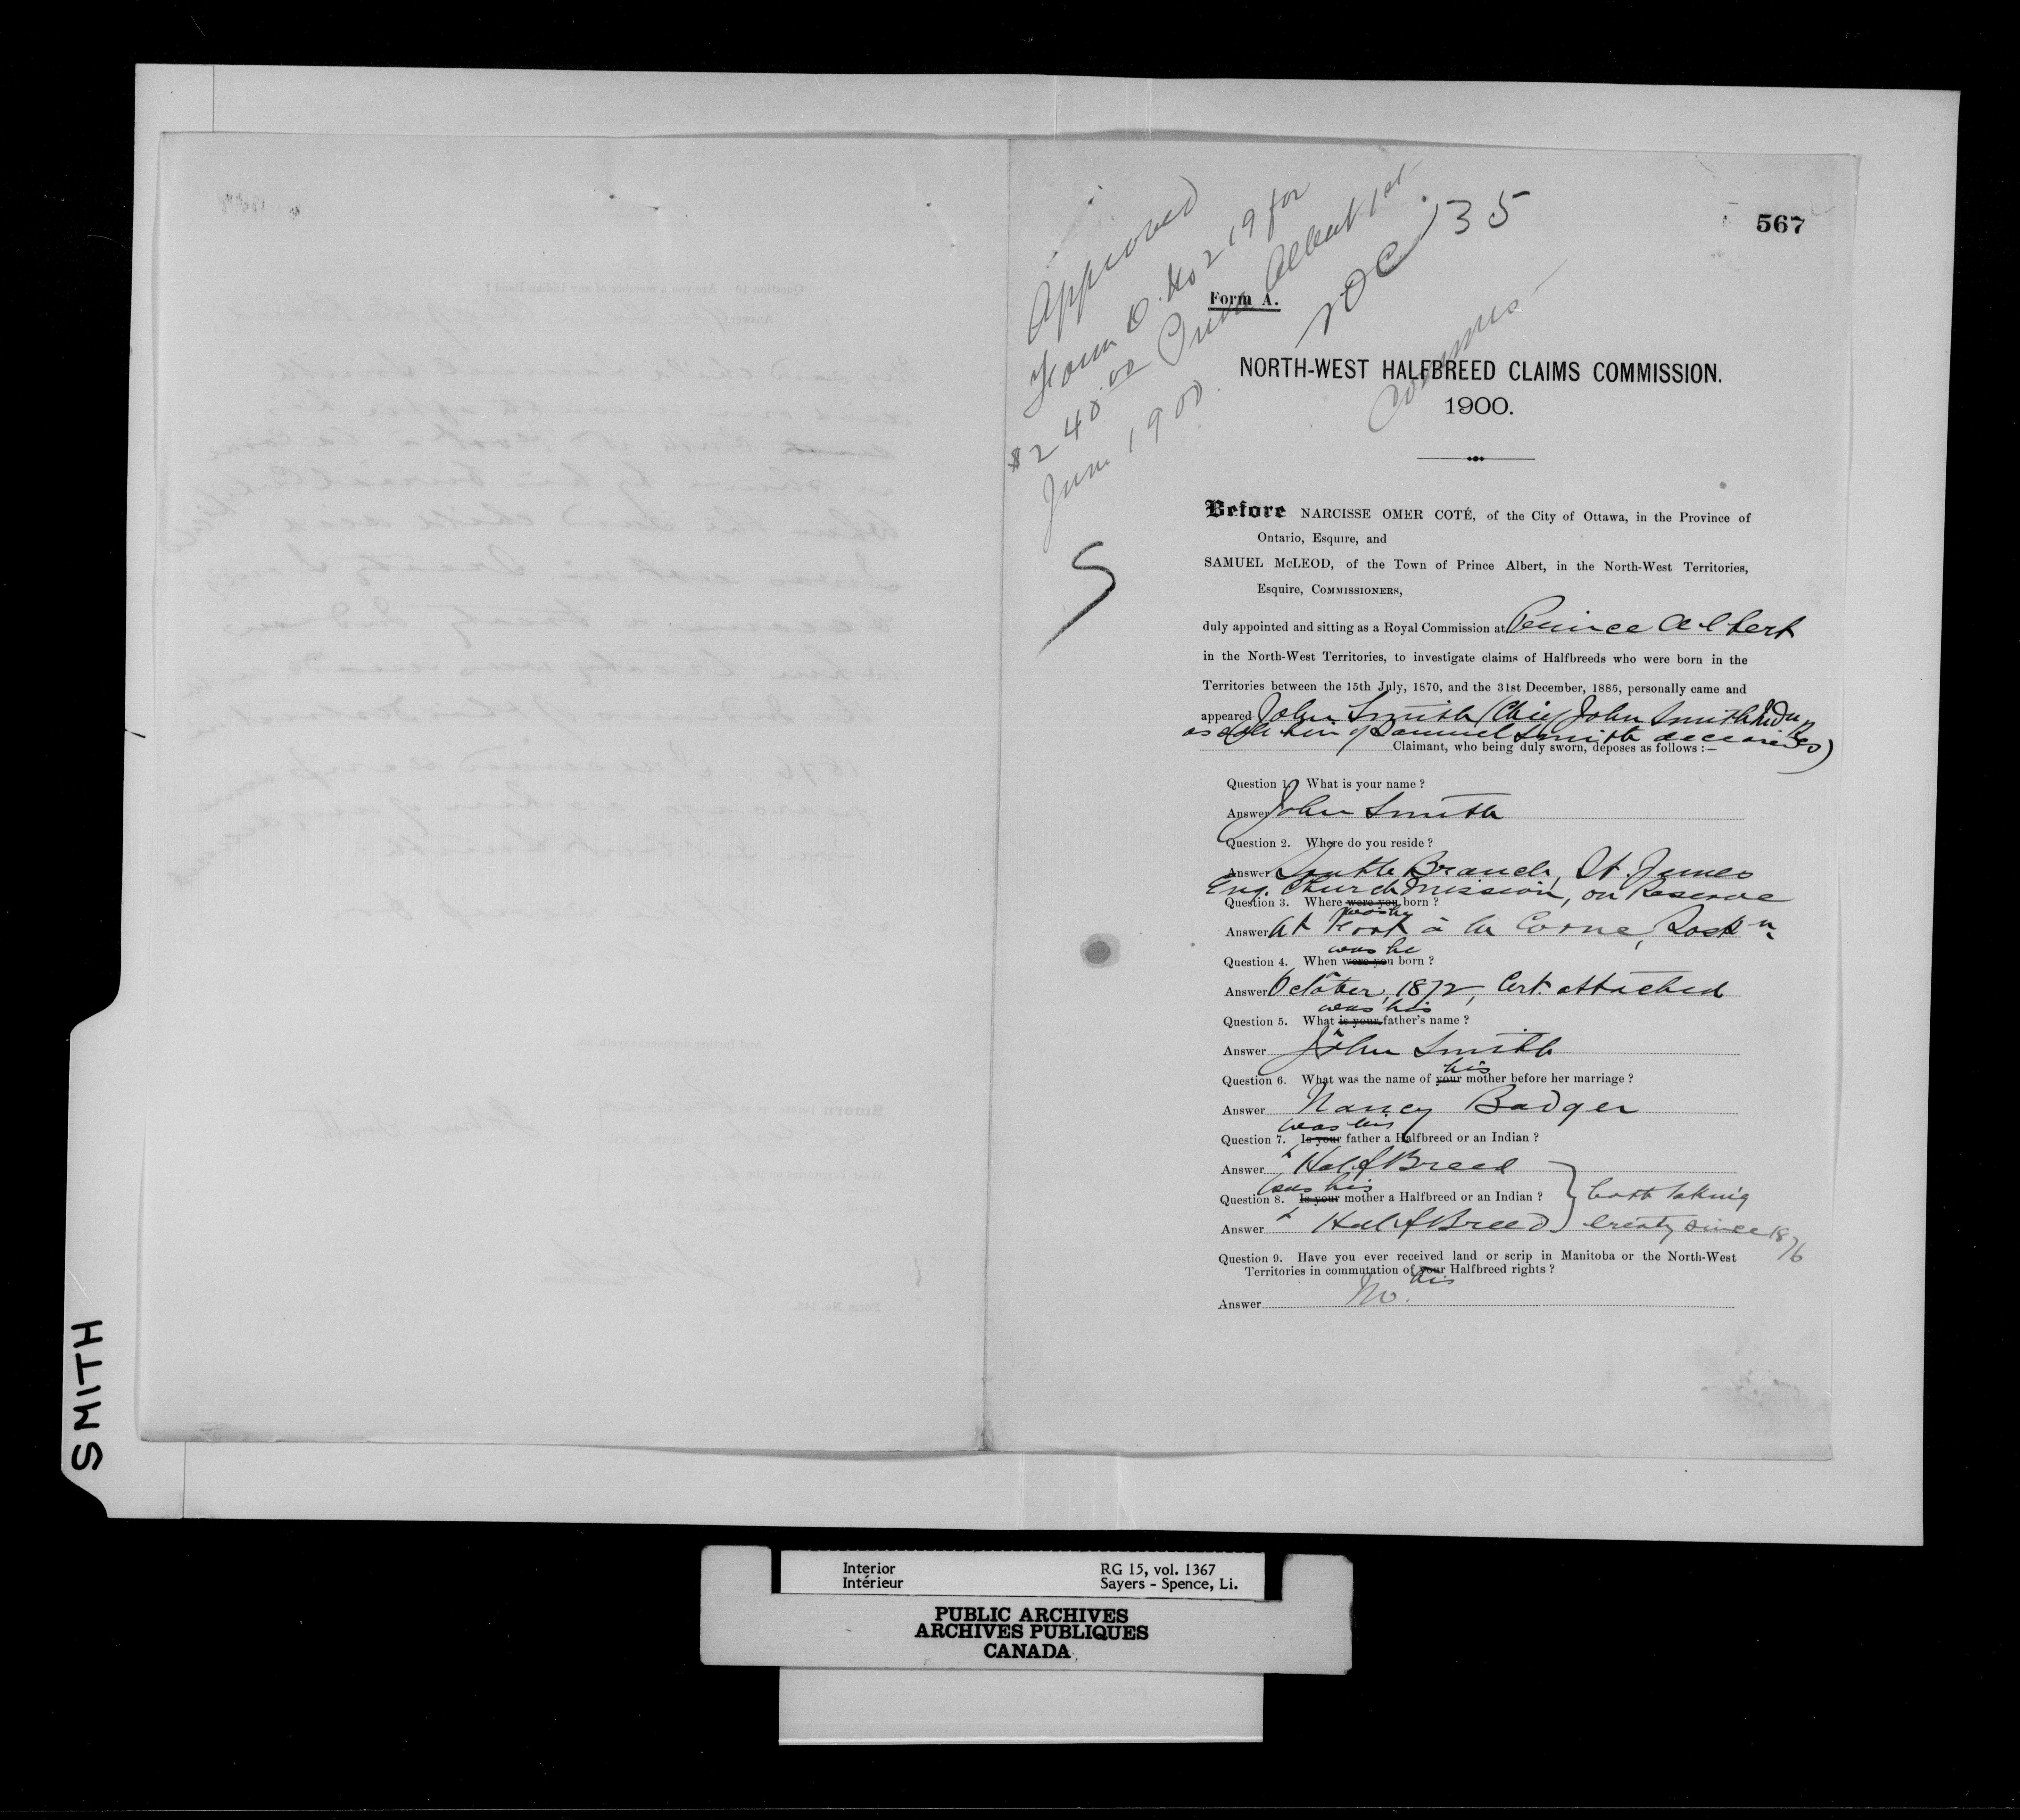 567
Approved
Form D. No 219 for
$240.00 Prince Albert 1st
June 1900.
NOC 135
Form A.
NORTH-WEST HALFBREED CLAIMS COMMISSION.
1900.
Before NARCISSE OMER COTÉ, of the City of Ottawa, in the Province of
Ontario, Esquire, and
SAMUEL McLEOD, of the Town of Prince Albert, in the North-West Territories,
Esquire, COMMISSIONERS,
duly appointed and sitting as a Royal Commission at Prince Albert
in the North-West Territories, to investigate claims of Halfbreeds who were born in the
Territories between the 15th July, 1870, and the 31st December, 1885, personally came and
appeared John Smith (Chief John Smith
as sole heir of Samuel Smith deceased)
Claimant, who being duly sworn, deposes as follows :—
Question 1. What is your name ?
Answer John Smith
Question 2. Where do you reside ?
Answer South Branch, St. James
Eng. Church Mission, on Reserve
Question 3. Where were you was he born ?
Answer At Fort à la Corne, Sask
Question 4. When were you was he born ?
Answer October, 1872, Cert. attached
Question 5. What is your was his father's name ?
Answer John Smith
Question 6. What was the name of your his mother before her marriage ?
Answer Nancy Badger
Question 7. Is your was his father a Halfbreed or an Indian ?
Answer HalfBreed
Question 8. Is your was his mother a Halfbreed or an Indian ?
Answer HalfBreed } both taking treaty since 1876
Question 9. Have you ever received land or scrip in Manitoba or the North-West
Territories in commutation of your his Halfbreed rights ?
Answer No.
SMITH
Interior RG 15, vol. 1367
Intérieur Sayers - Spence, Li.
PUBLIC ARCHIVES
ARCHIVES PUBLIQUES
CANADA